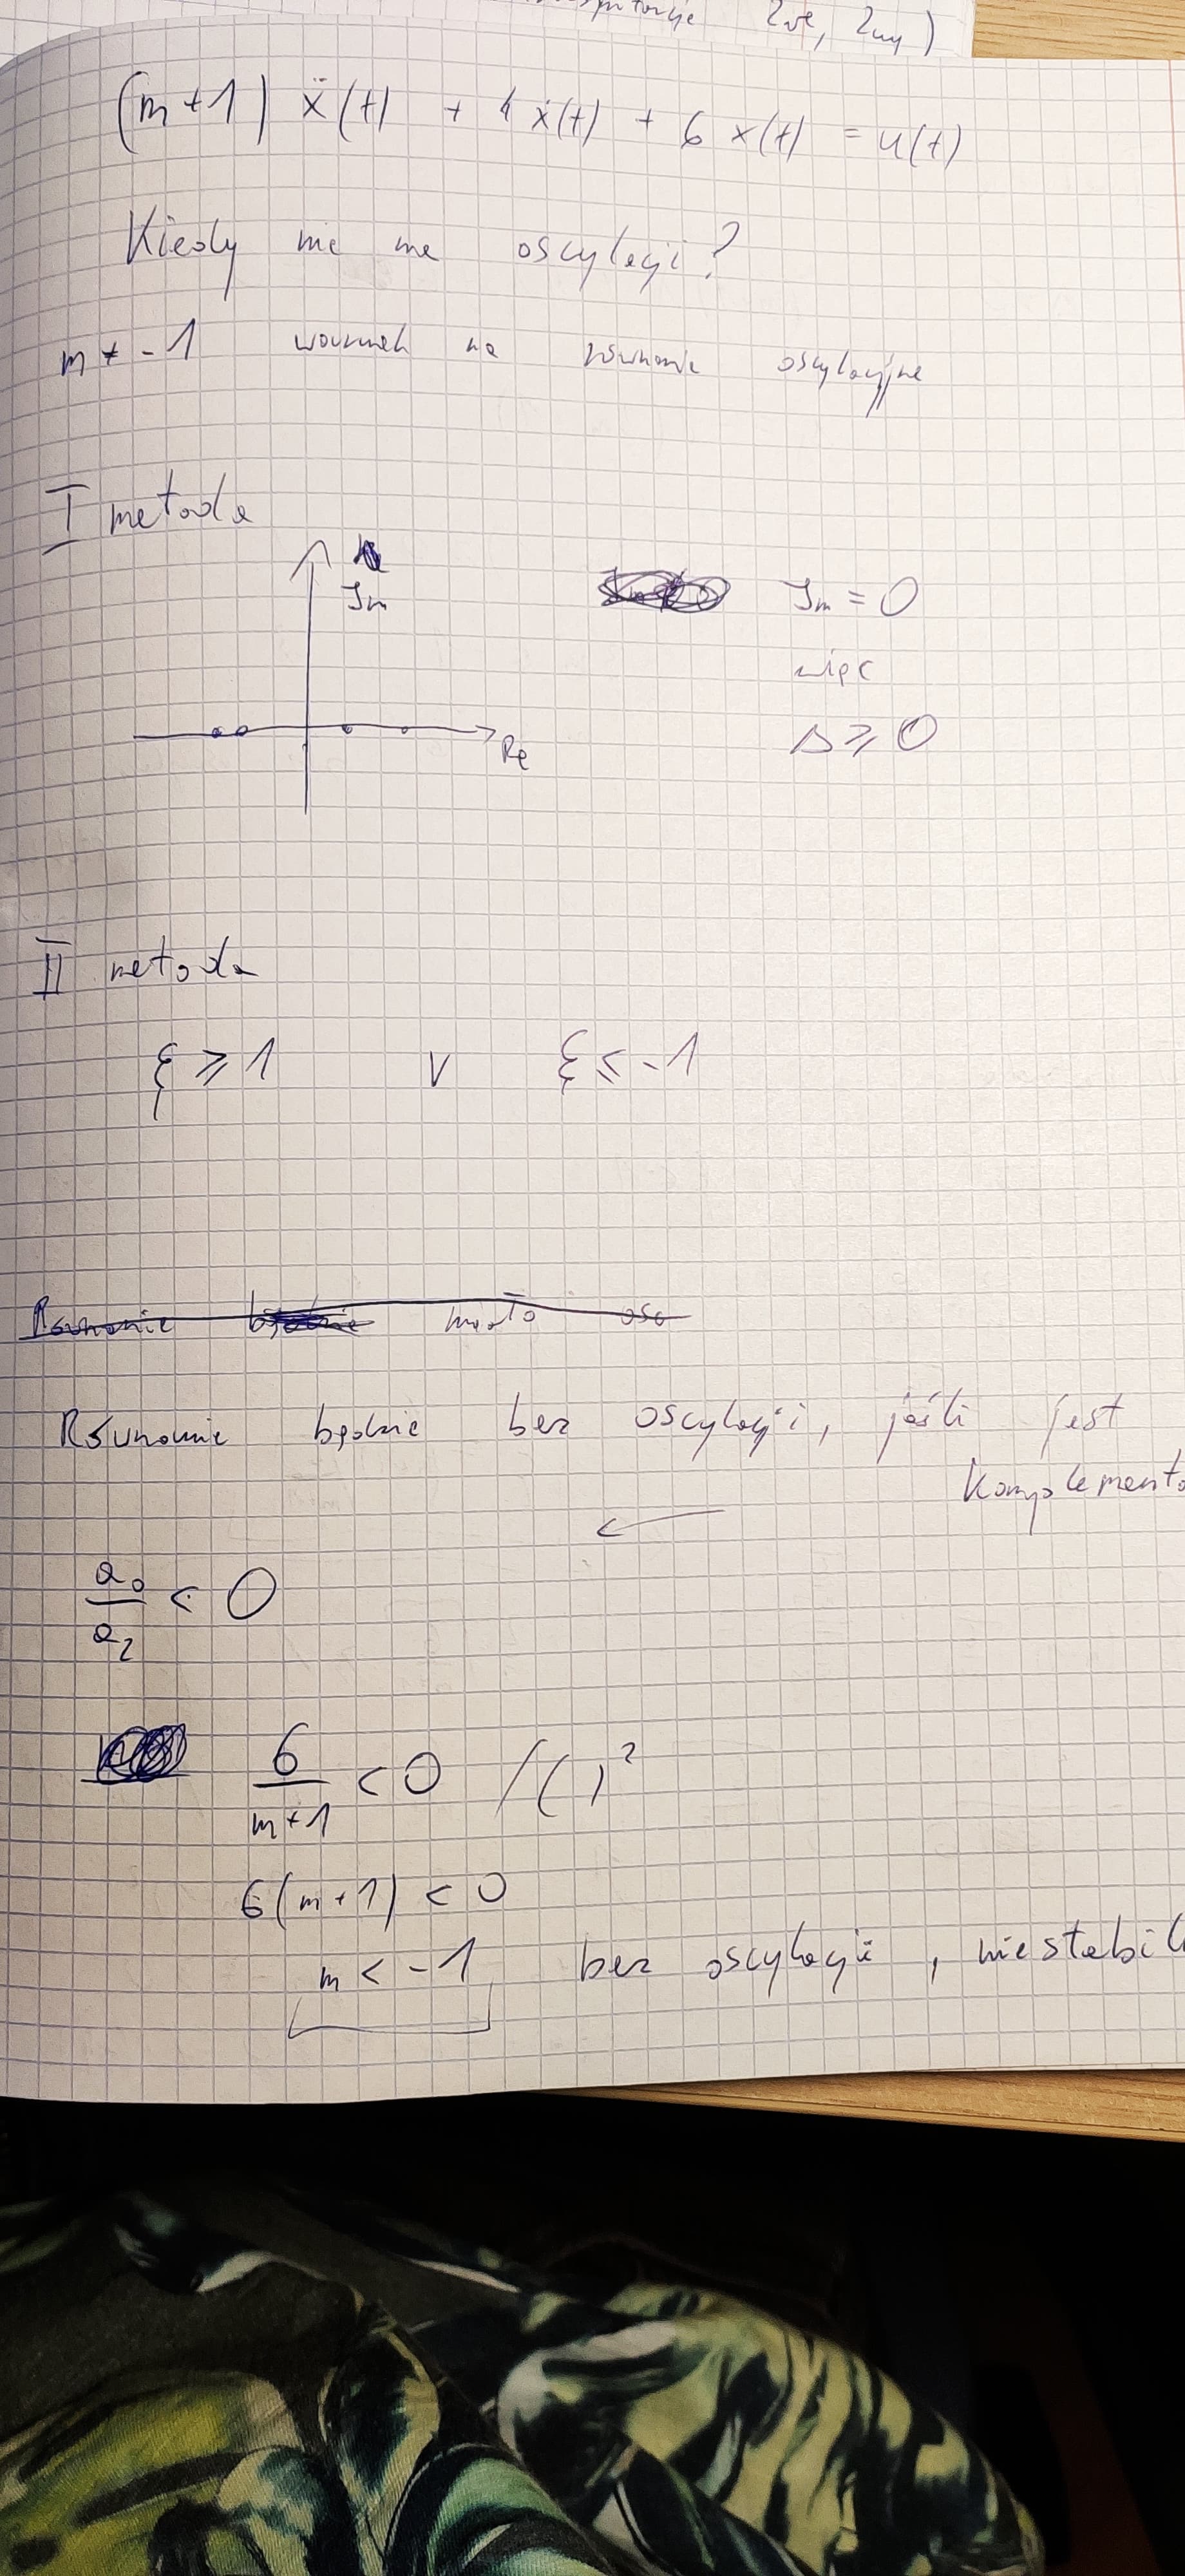 2we, 2wy)
(m+1) ẍ(t) + 4 ẋ(t) + 6 x(t) = u(t)
Kiedy nie ma oscylacji?
m ≠ -1 warunek na równanie oscylacyjne
I metoda
Im
Im = 0
więc
Δ ≥ 0
Re
II metoda
ξ ≥ 1 ∨ ξ ≤ -1
Równanie będzie miało osc
Równanie będzie bez oscylacji, jeśli jest
Komplementa
a₀/a₂ < 0
6/(m+1) < 0 /( )²
6(m+1) < 0
m < -1 bez oscylacji, niestabil